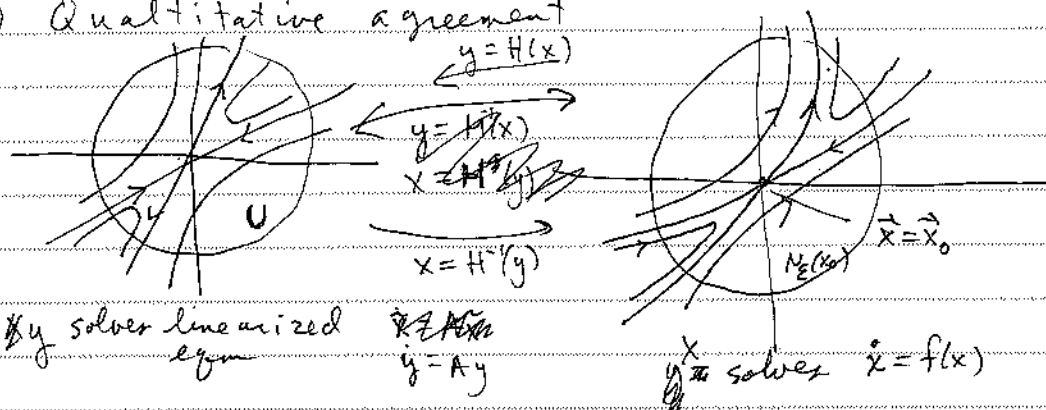 ) Qualtitative agreement
y = H(x)
y = H⁻¹(x)
x = H⁻¹(y)
U
x = H⁻¹(y)
N_ε(x₀)
x⃗ = x⃗₀
y solves linearized
eqm
ẏ = Ay
x solves ẋ = f(x)